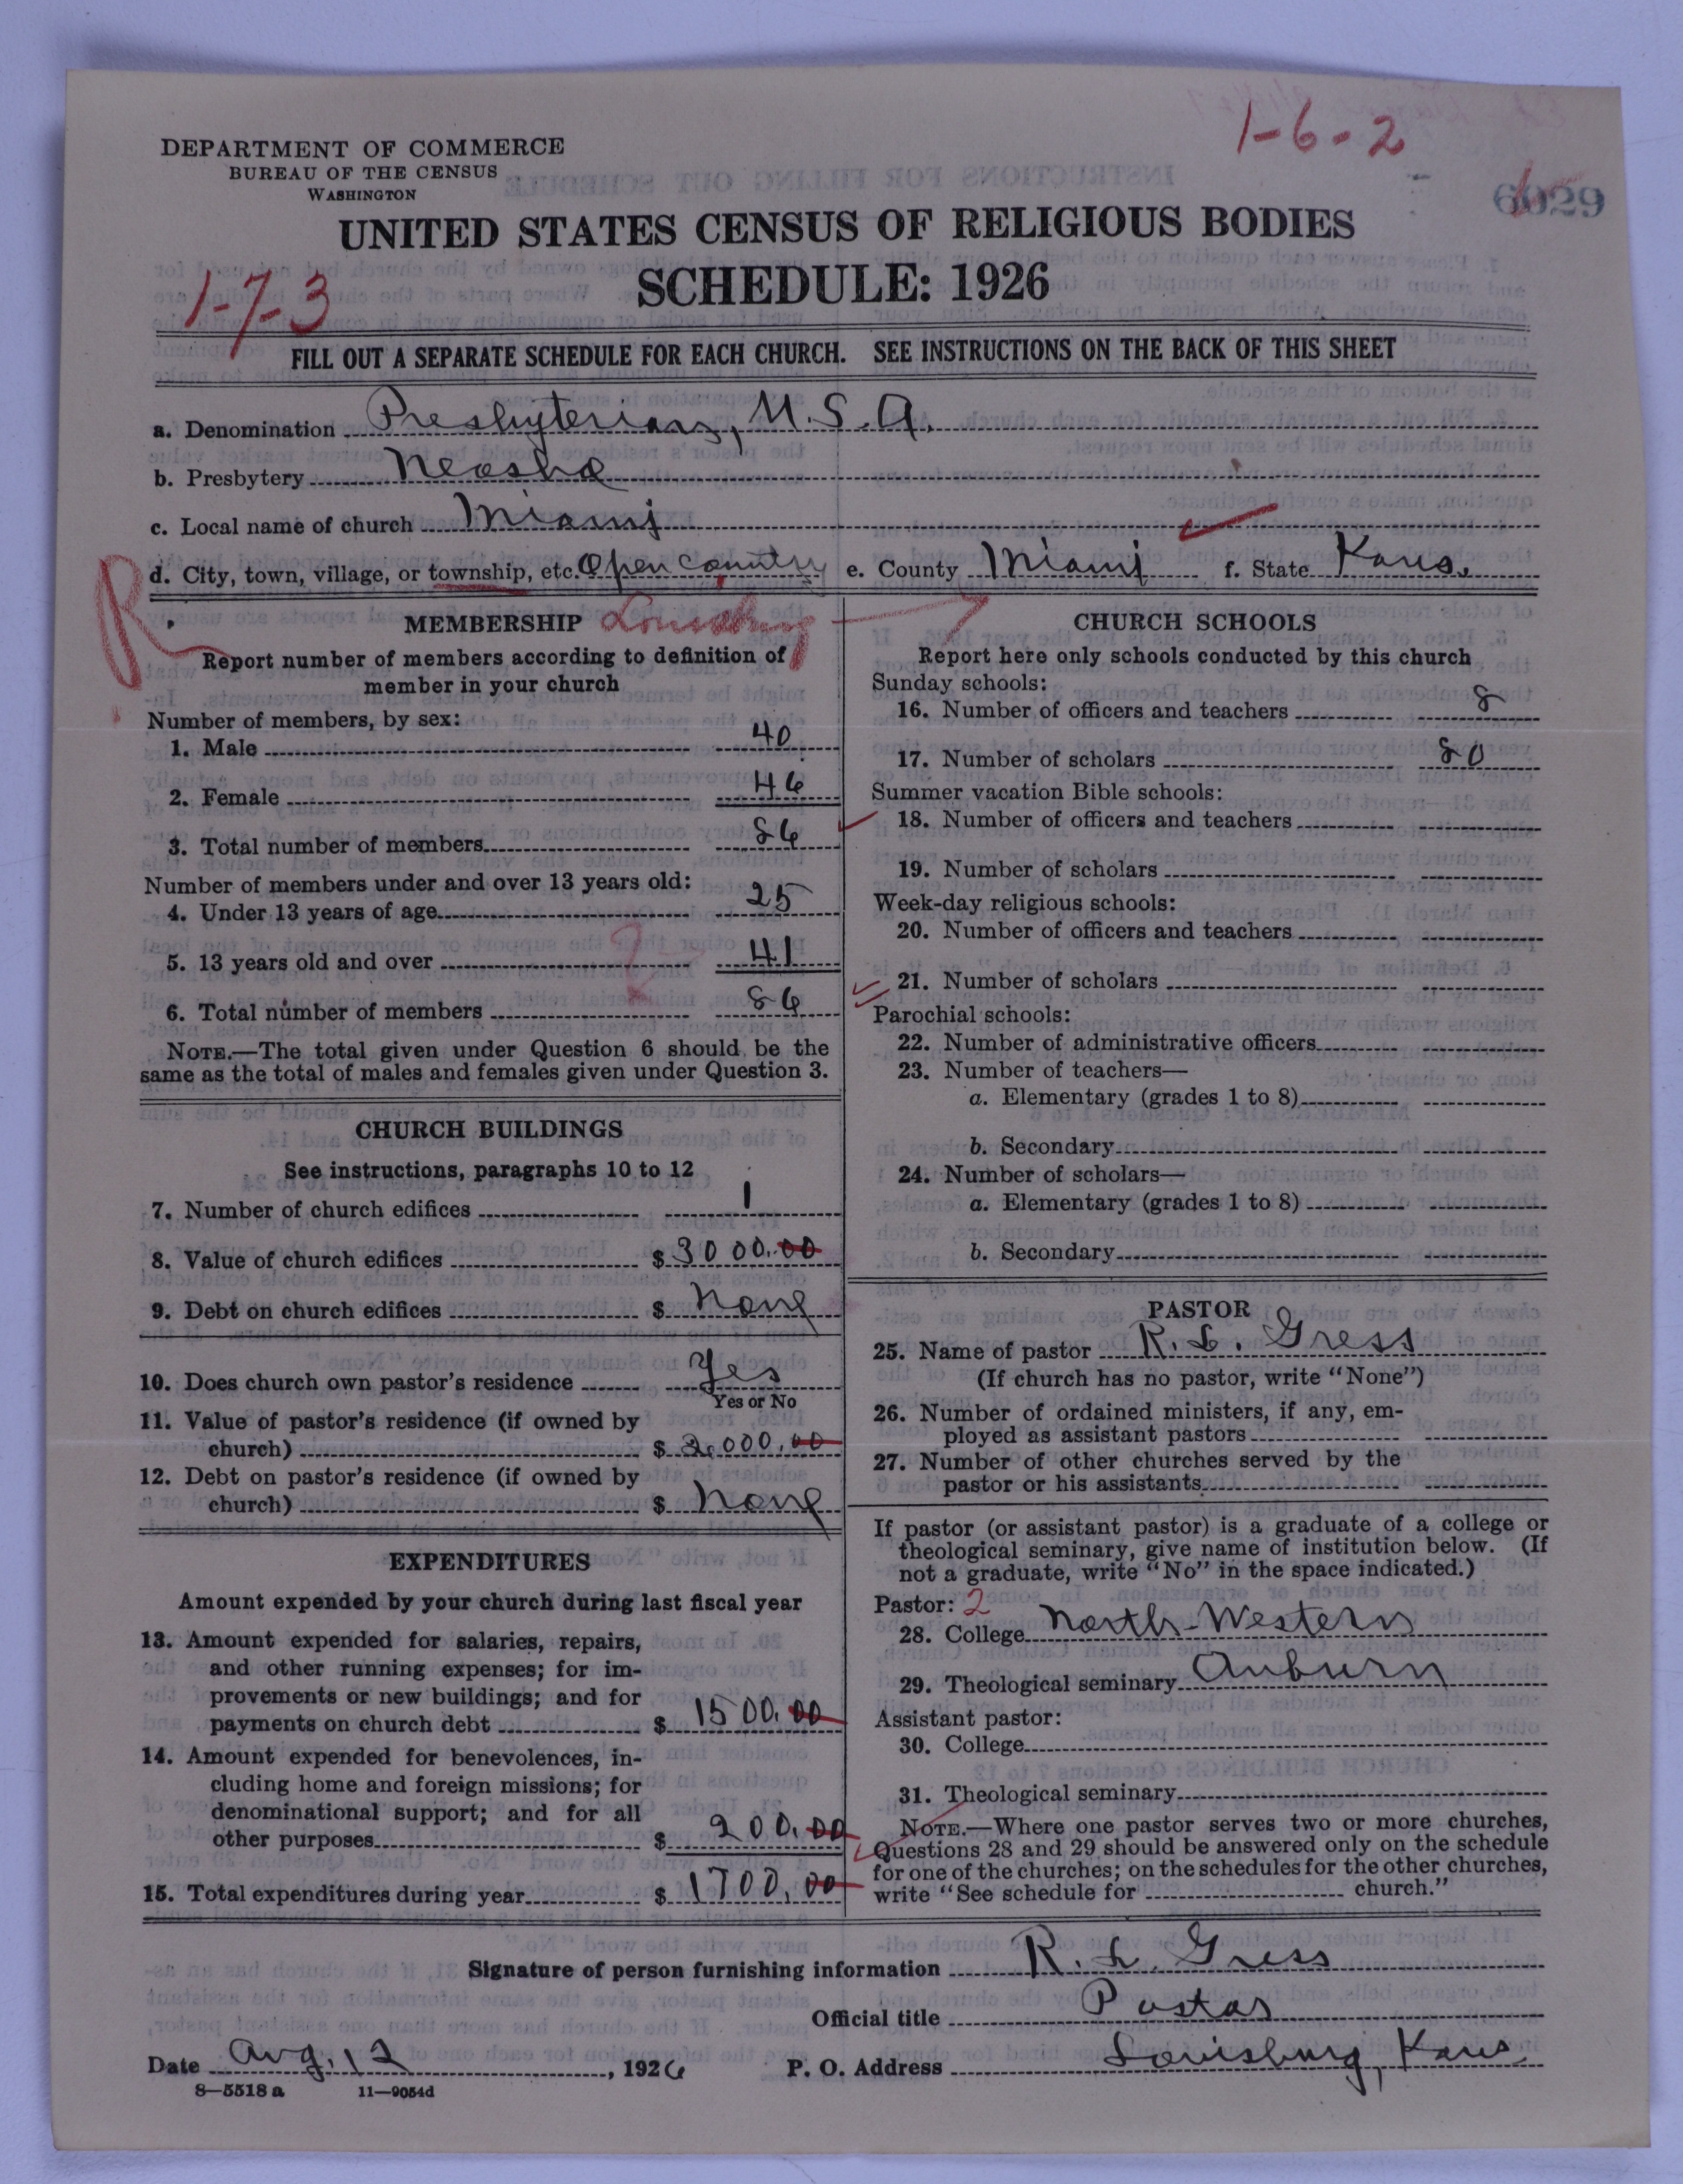 1-6-2
6029
DEPARTMENT OF COMMERCE
BUREAU OF THE CENSUS
WASHINGTON
UNITED STATES CENSUS OF RELIGIOUS BODIES
SCHEDULE: 1926
1-7-3
FILL OUT A SEPARATE SCHEDULE FOR EACH CHURCH. SEE INSTRUCTIONS ON THE BACK OF THIS SHEET
a. Denomination Presbyterian, U.S.A.
b. Presbytery Neosho
c. Local name of church Miami
d. City, town, village, or township, etc. Open country e. County Miami f. State Kans.
R
MEMBERSHIP Louisburg
Report number of members according to definition of
member in your church
Number of members, by sex:
1. Male 40
2. Female 46
3. Total number of members 86
Number of members under and over 13 years old:
4. Under 13 years of age 25
5. 13 years old and over 41
6. Total number of members 86
NOTE.—The total given under Question 6 should be the
same as the total of males and females given under Question 3.
CHURCH BUILDINGS
See instructions, paragraphs 10 to 12
7. Number of church edifices 1
8. Value of church edifices $ 3000.00
9. Debt on church edifices $ None
10. Does church own pastor's residence Yes
Yes or No
11. Value of pastor's residence (if owned by
church) $ 2,000.00
12. Debt on pastor's residence (if owned by
church) $ None
EXPENDITURES
Amount expended by your church during last fiscal year
13. Amount expended for salaries, repairs,
and other running expenses; for im-
provements or new buildings; and for
payments on church debt $ 1500.00
14. Amount expended for benevolences, in-
cluding home and foreign missions; for
denominational support; and for all
other purposes $ 200.00
15. Total expenditures during year $ 1700.00
CHURCH SCHOOLS
Report here only schools conducted by this church
Sunday schools:
16. Number of officers and teachers 8
17. Number of scholars 80
Summer vacation Bible schools:
18. Number of officers and teachers
19. Number of scholars
Week-day religious schools:
20. Number of officers and teachers
21. Number of scholars
Parochial schools:
22. Number of administrative officers
23. Number of teachers—
a. Elementary (grades 1 to 8)
b. Secondary
24. Number of scholars—
a. Elementary (grades 1 to 8)
b. Secondary
PASTOR
25. Name of pastor R. L. Gress
(If church has no pastor, write "None")
26. Number of ordained ministers, if any, em-
ployed as assistant pastors
27. Number of other churches served by the
pastor or his assistants
If pastor (or assistant pastor) is a graduate of a college or
theological seminary, give name of institution below. (If
not a graduate, write "No" in the space indicated.)
Pastor: 2
28. College North-Western
29. Theological seminary Auburn
Assistant pastor:
30. College
31. Theological seminary
NOTE.—Where one pastor serves two or more churches,
Questions 28 and 29 should be answered only on the schedule
for one of the churches; on the schedules for the other churches,
write "See schedule for church."
Signature of person furnishing information R. L. Gress
Official title Pastor
Date Aug. 12, 1926 P. O. Address Louisburg, Kans
8—5518 a 11—9054d